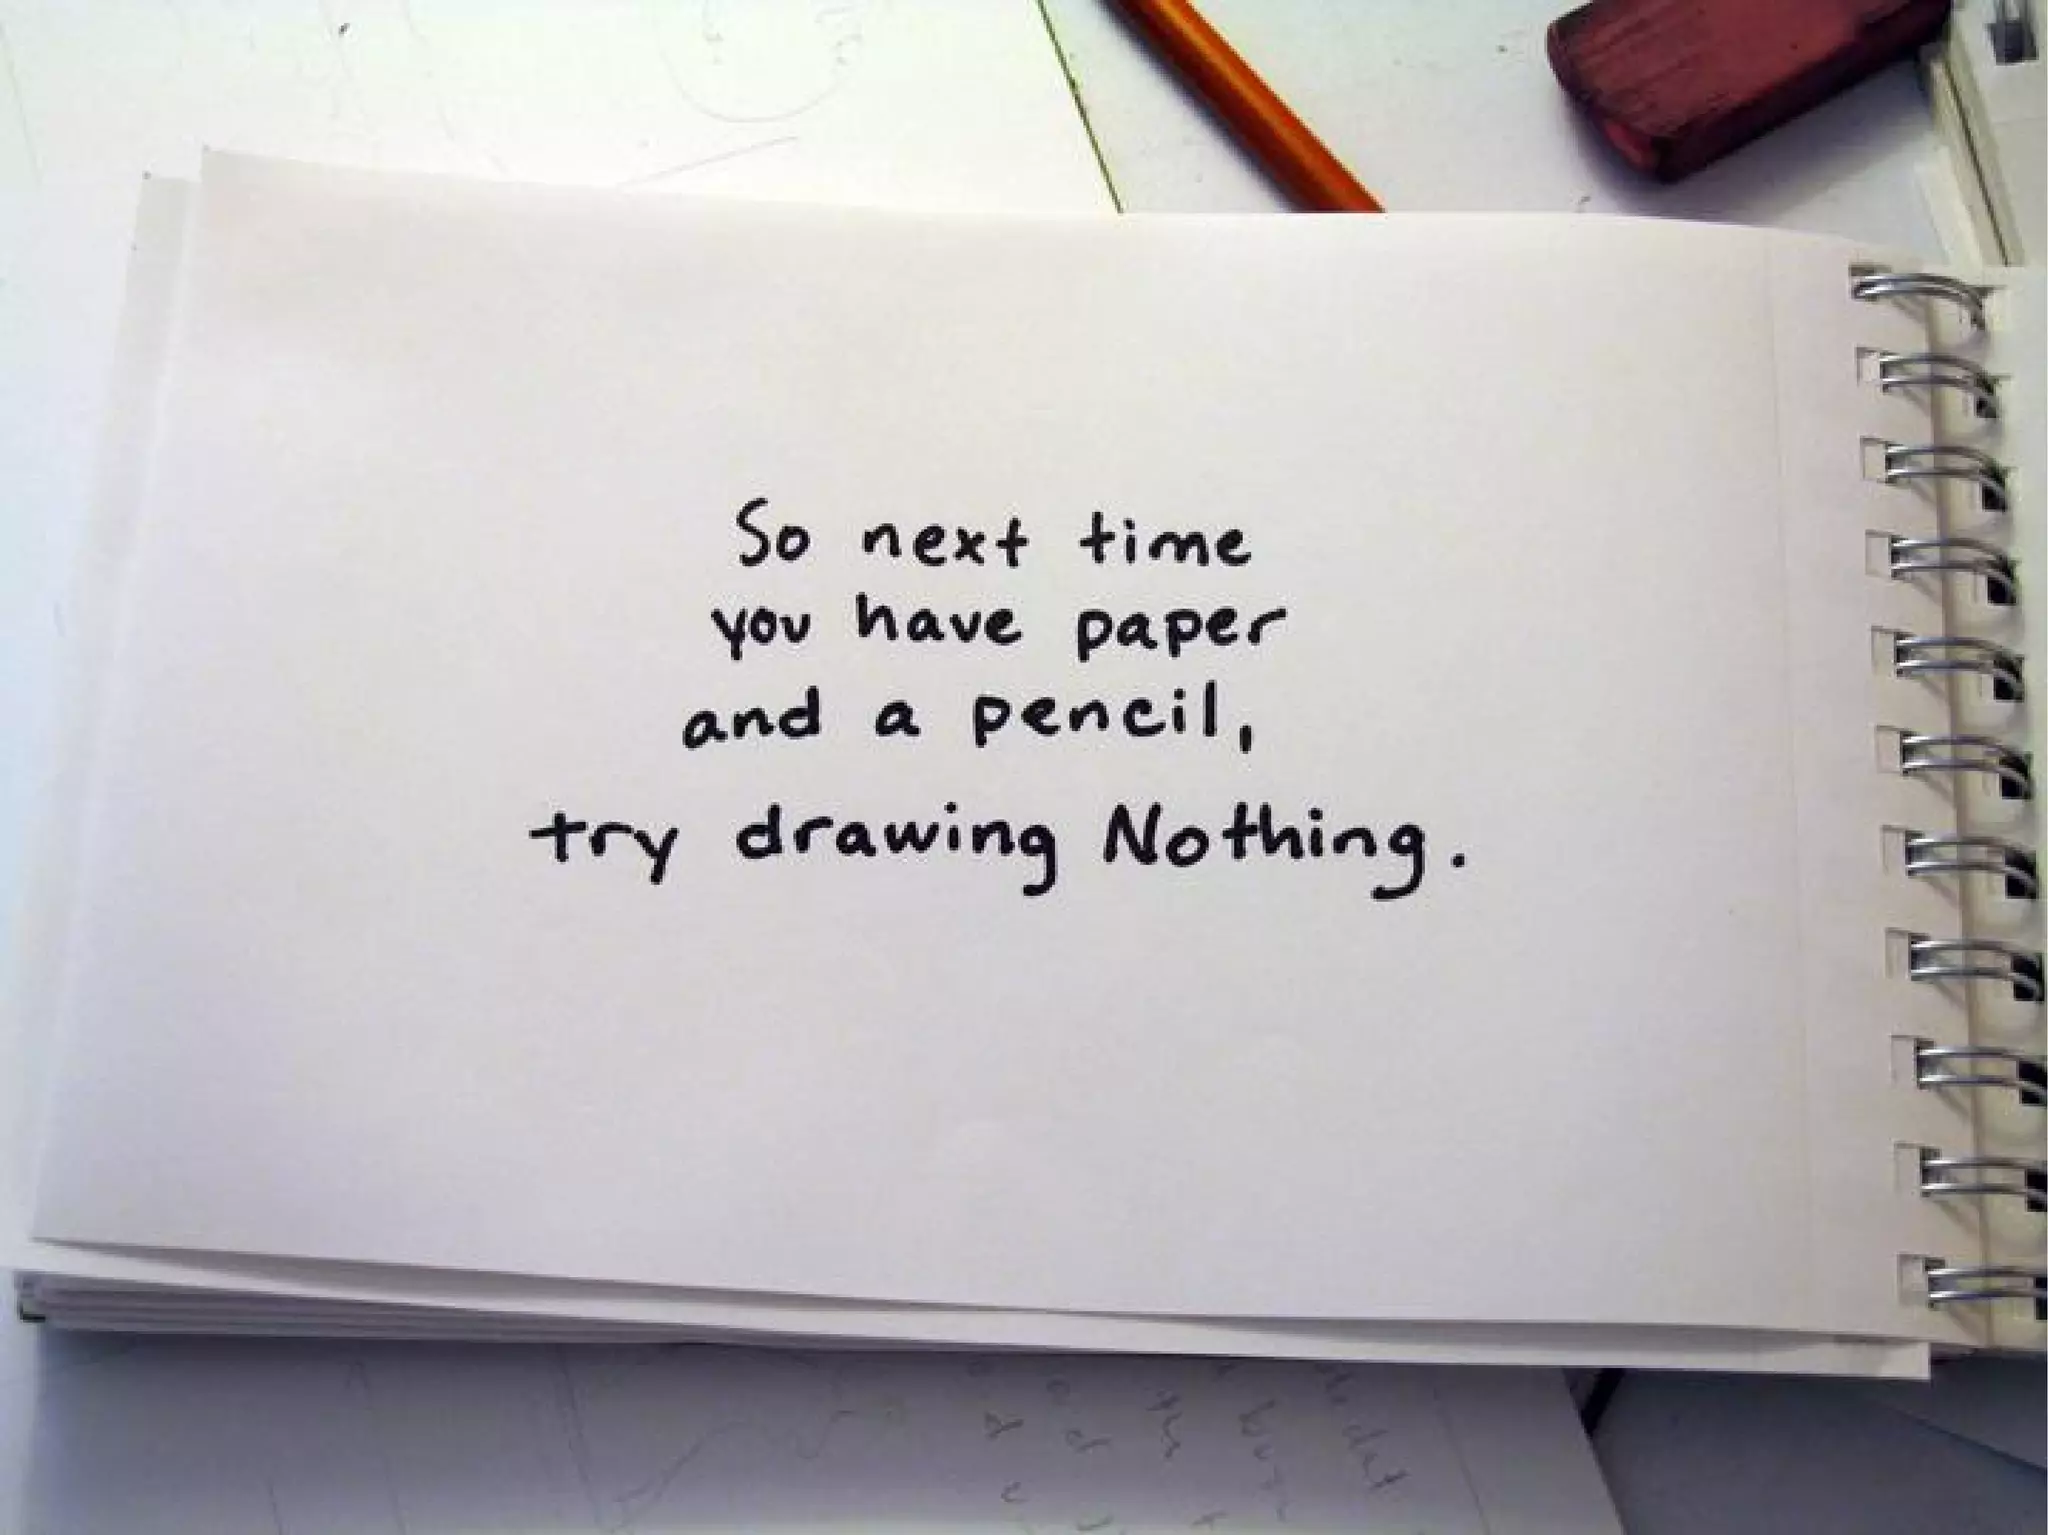 So next time
you have paper
and a pencil,
try drawing Nothing.